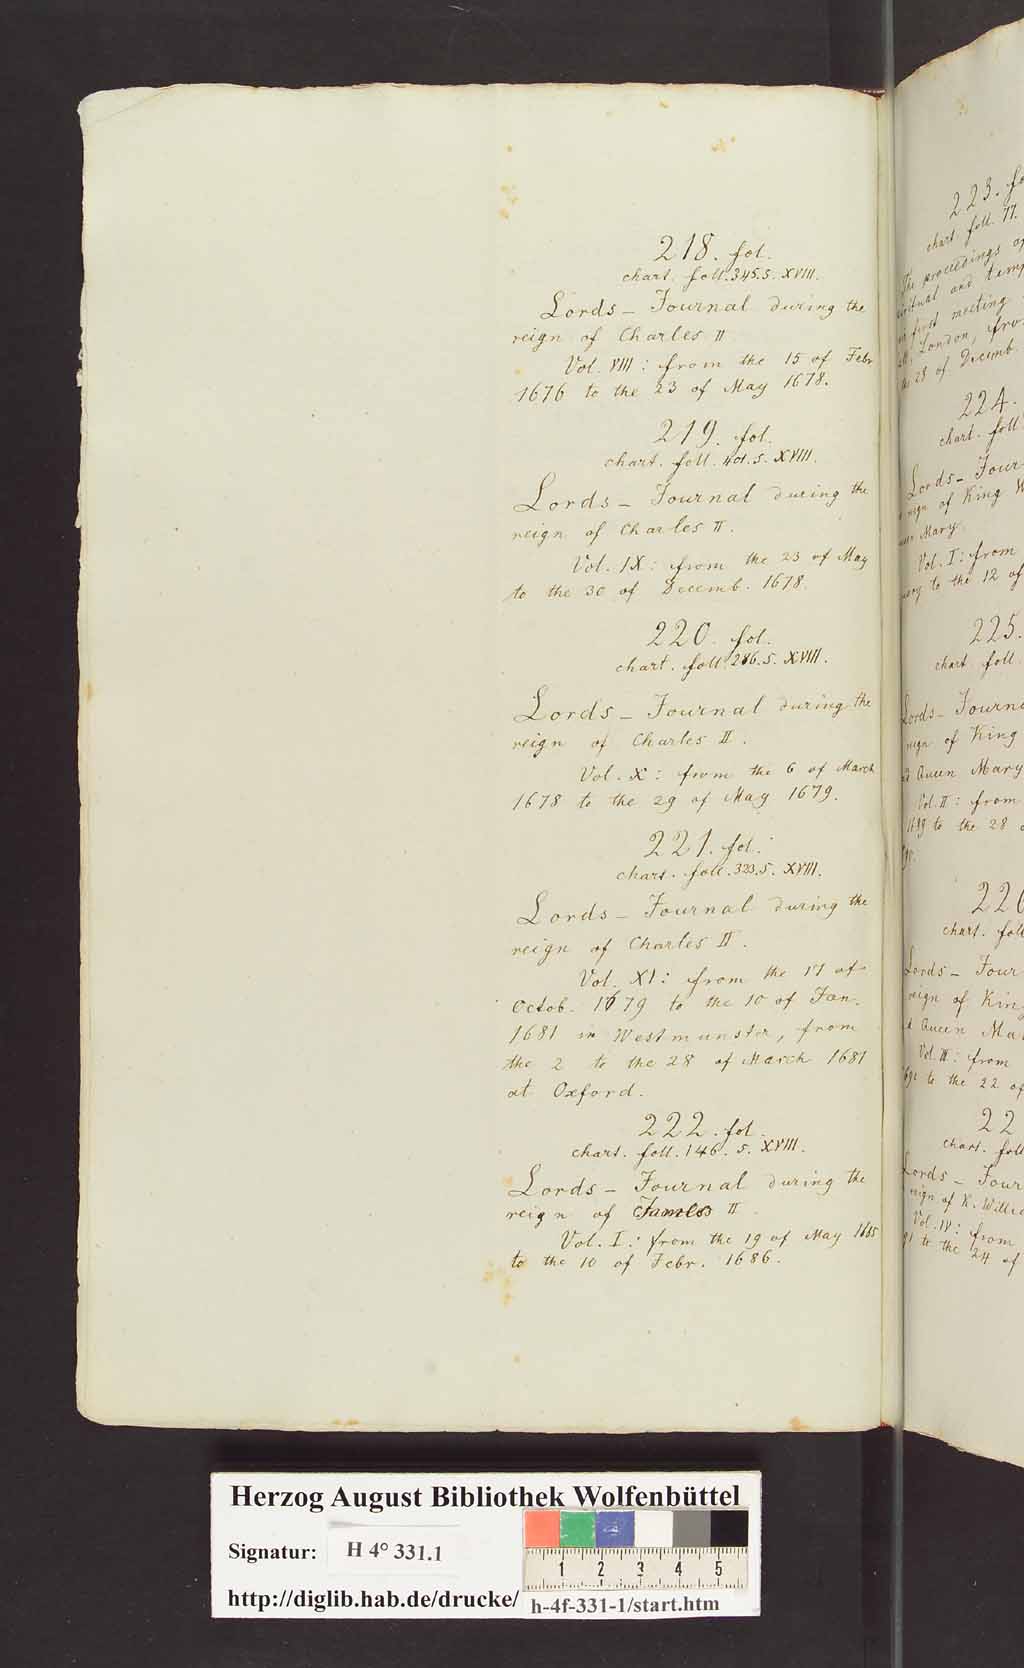 218. fol.
chart. foll. 345. s. XVIII.
Lords – Journal during the
reign of Charles II
Vol. VIII: from the 15 of Febr
1676 to the 23 of May 1678.
219. fol.
chart. foll. 401. s. XVIII.
Lords – Journal during the
reign of Charles II.
Vol. IX: from the 23 of May
to the 30 of Decemb. 1678.
220. fol.
chart. foll. 286. s. XVIII.
Lords – Journal during the
reign of Charles II.
Vol. X: from the 6 of March
1678 to the 29 of May 1679.
221. fol.
chart. foll. 323. s. XVIII.
Lords – Journal during the
reign of Charles II.
Vol. XI: from the 17 of
Octob. 1679 to the 10 of Jan.
1681 in Westmunster, from
the 2 to the 28 of March 1681
at Oxford.
222. fol.
chart. foll. 146. s. XVIII.
Lords – Journal during the
reign of James II.
Vol. I: from the 19 of May 1685
to the 10 of Febr. 1686.
223. fo
chart. foll. 77.
The proceedings of
and temp
first meeting
London, fro
28 of Decemb.
224.
chart. foll.
Lords – Jour
reign of King W
Mary.
Vol. I: from
to the 12 of
225.
chart. foll.
Lords – Journa
reign of King
Queen Mary
Vol. II: from
to the 28
226
chart. foll
Lords – Jour
reign of King
Queen Ma
Vol. III: from
to the 22 of
22
chart. foll
Lords – Jour
reign of K. Willia
Vol. IV: from
to the 24 of
Herzog August Bibliothek Wolfenbüttel
Signatur: H 4° 331.1
1 2 3 4 5
http://diglib.hab.de/drucke/ h-4f-331-1/start.htm